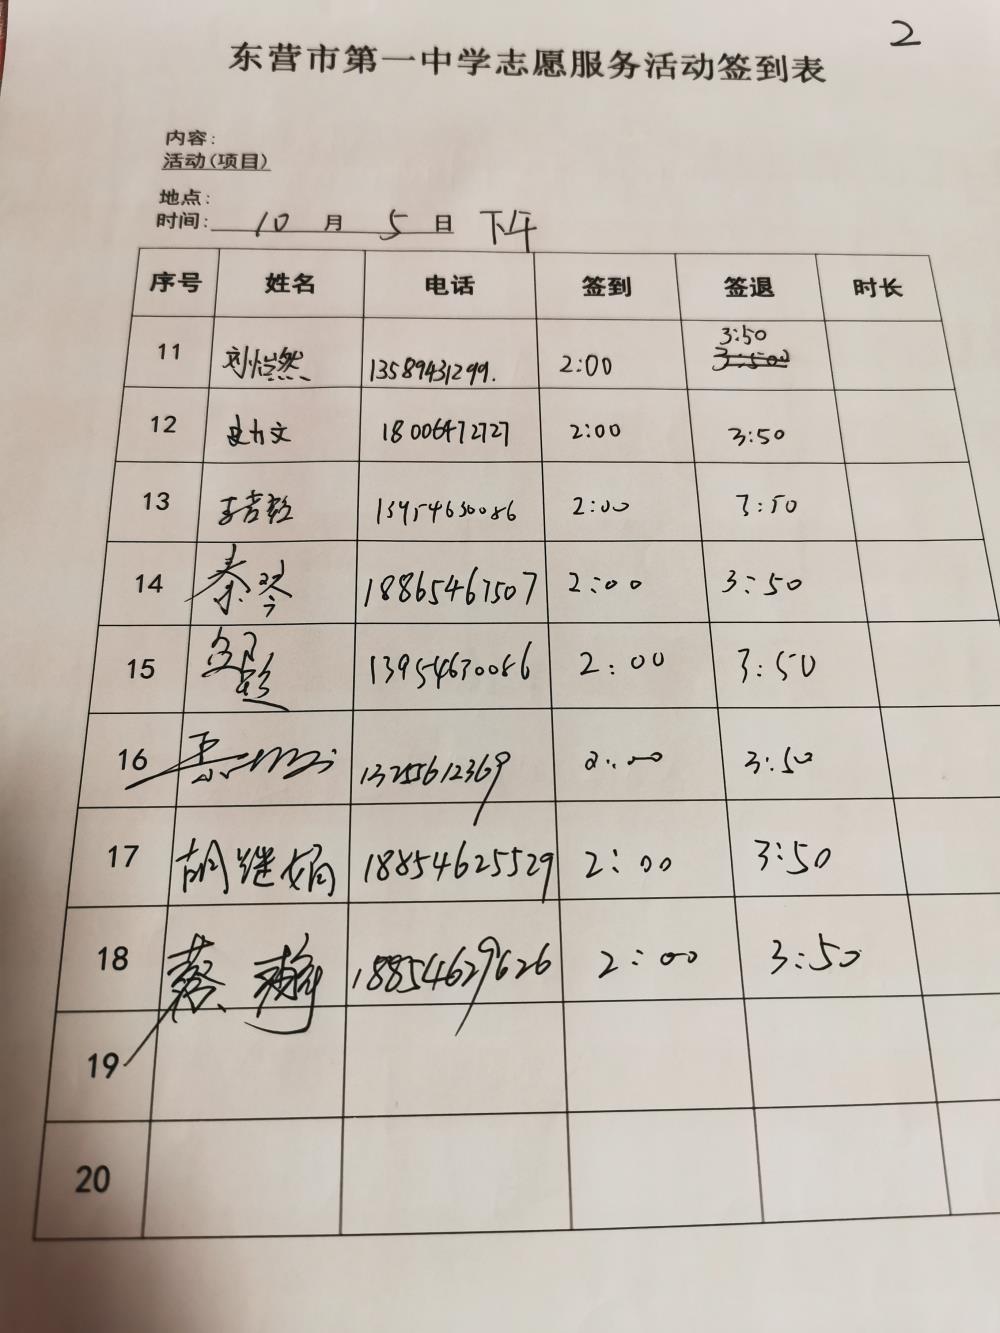 2
东营市第一中学志愿服务活动签到表
内容:
活动(项目)
地点:
时间: 10 月 5 日 下午
序号 姓名 电话 签到 签退 时长
3:50
11 刘怡然 13589431299. 2:00 3:500
12 史力文 18006472727 2:00 3:50
13 13954630086 2:00 3:50
14 秦琴 18865467507 2:00 3:50
15 13954630086 2:00 3:50
16 13255612369 2:00 3:50
17 胡继娟 18854625529 2:00 3:50
18 蔡瀚 18854629626 2:00 3:50
19
20